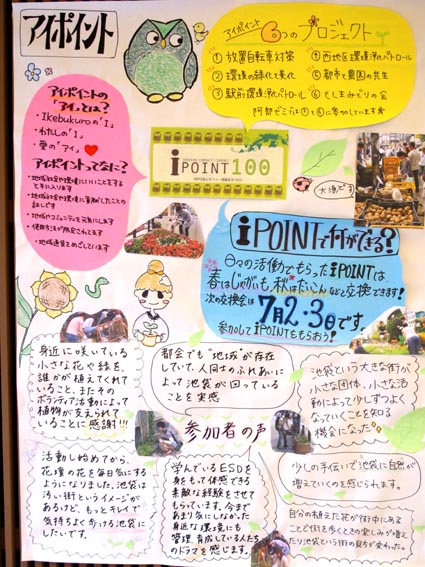 アイポイント
アイポイント 6つのプロジェクト
① 放置自転車対策
② 環境の緑化と美化
③ 駅前環境浄化パトロール
④ 西地区環境浄化パトロール
⑤ 都市と農園の共生
⑥ としまみどりの会
阿部ゼミでは
に参加しています
アイポイントの
「アイ」とは?
・Ikebukuroの「I」
・わたしの「I」
・愛の「アイ」
アイポイントってなに?
・地域社会や環境にいいことをすると手に入ります
・地域社会や環境に貢献したことの証しです
・地域やコミュニティを元気にします
・使用方法が限定されてます
・地域通貨をめざしています
iPOINT 100
大漁です
iPOINTで何ができる?
日々の活動でもらったiPOINTは
春はじゃがいも、秋はだいこんなどと交換できます!
次の交換会は 7月2・3日です。
参加してiPOINTをもらおう!
身近に咲いている
小さな花や緑を、
誰かが植えてくれて
いること、またその
ボランティア活動によって
植物が支えられて
いることに感謝!!!
都会でも“地域”が存在
していて、人同士のふれあいに
よって池袋が回っている
ことを実感
池袋という大きな街が
小さな団体、小さな活
動によって少しずつよく
なっていくことを知る
機会になった
参加者の声
活動し始めてから、
花壇の花を毎日気にする
ようになりました。池袋は
汚い街というイメージが
あるけど、もっとキレイで
気持ちよく歩ける池袋に
したいです。
学んでいるESDを
身をもって体感できる
素敵な経験をさせて
もらっています。今まで
あまり気にしなかった
身近な環境にも
管理、育成している人たち
のドラマを感じます。
少しの手伝いで池袋に自然が
増えていくのを感じられます。
自分の植えた花が街中にある
ことで街を歩くときの楽しみが増え
たり池袋という街の見方が変わった。